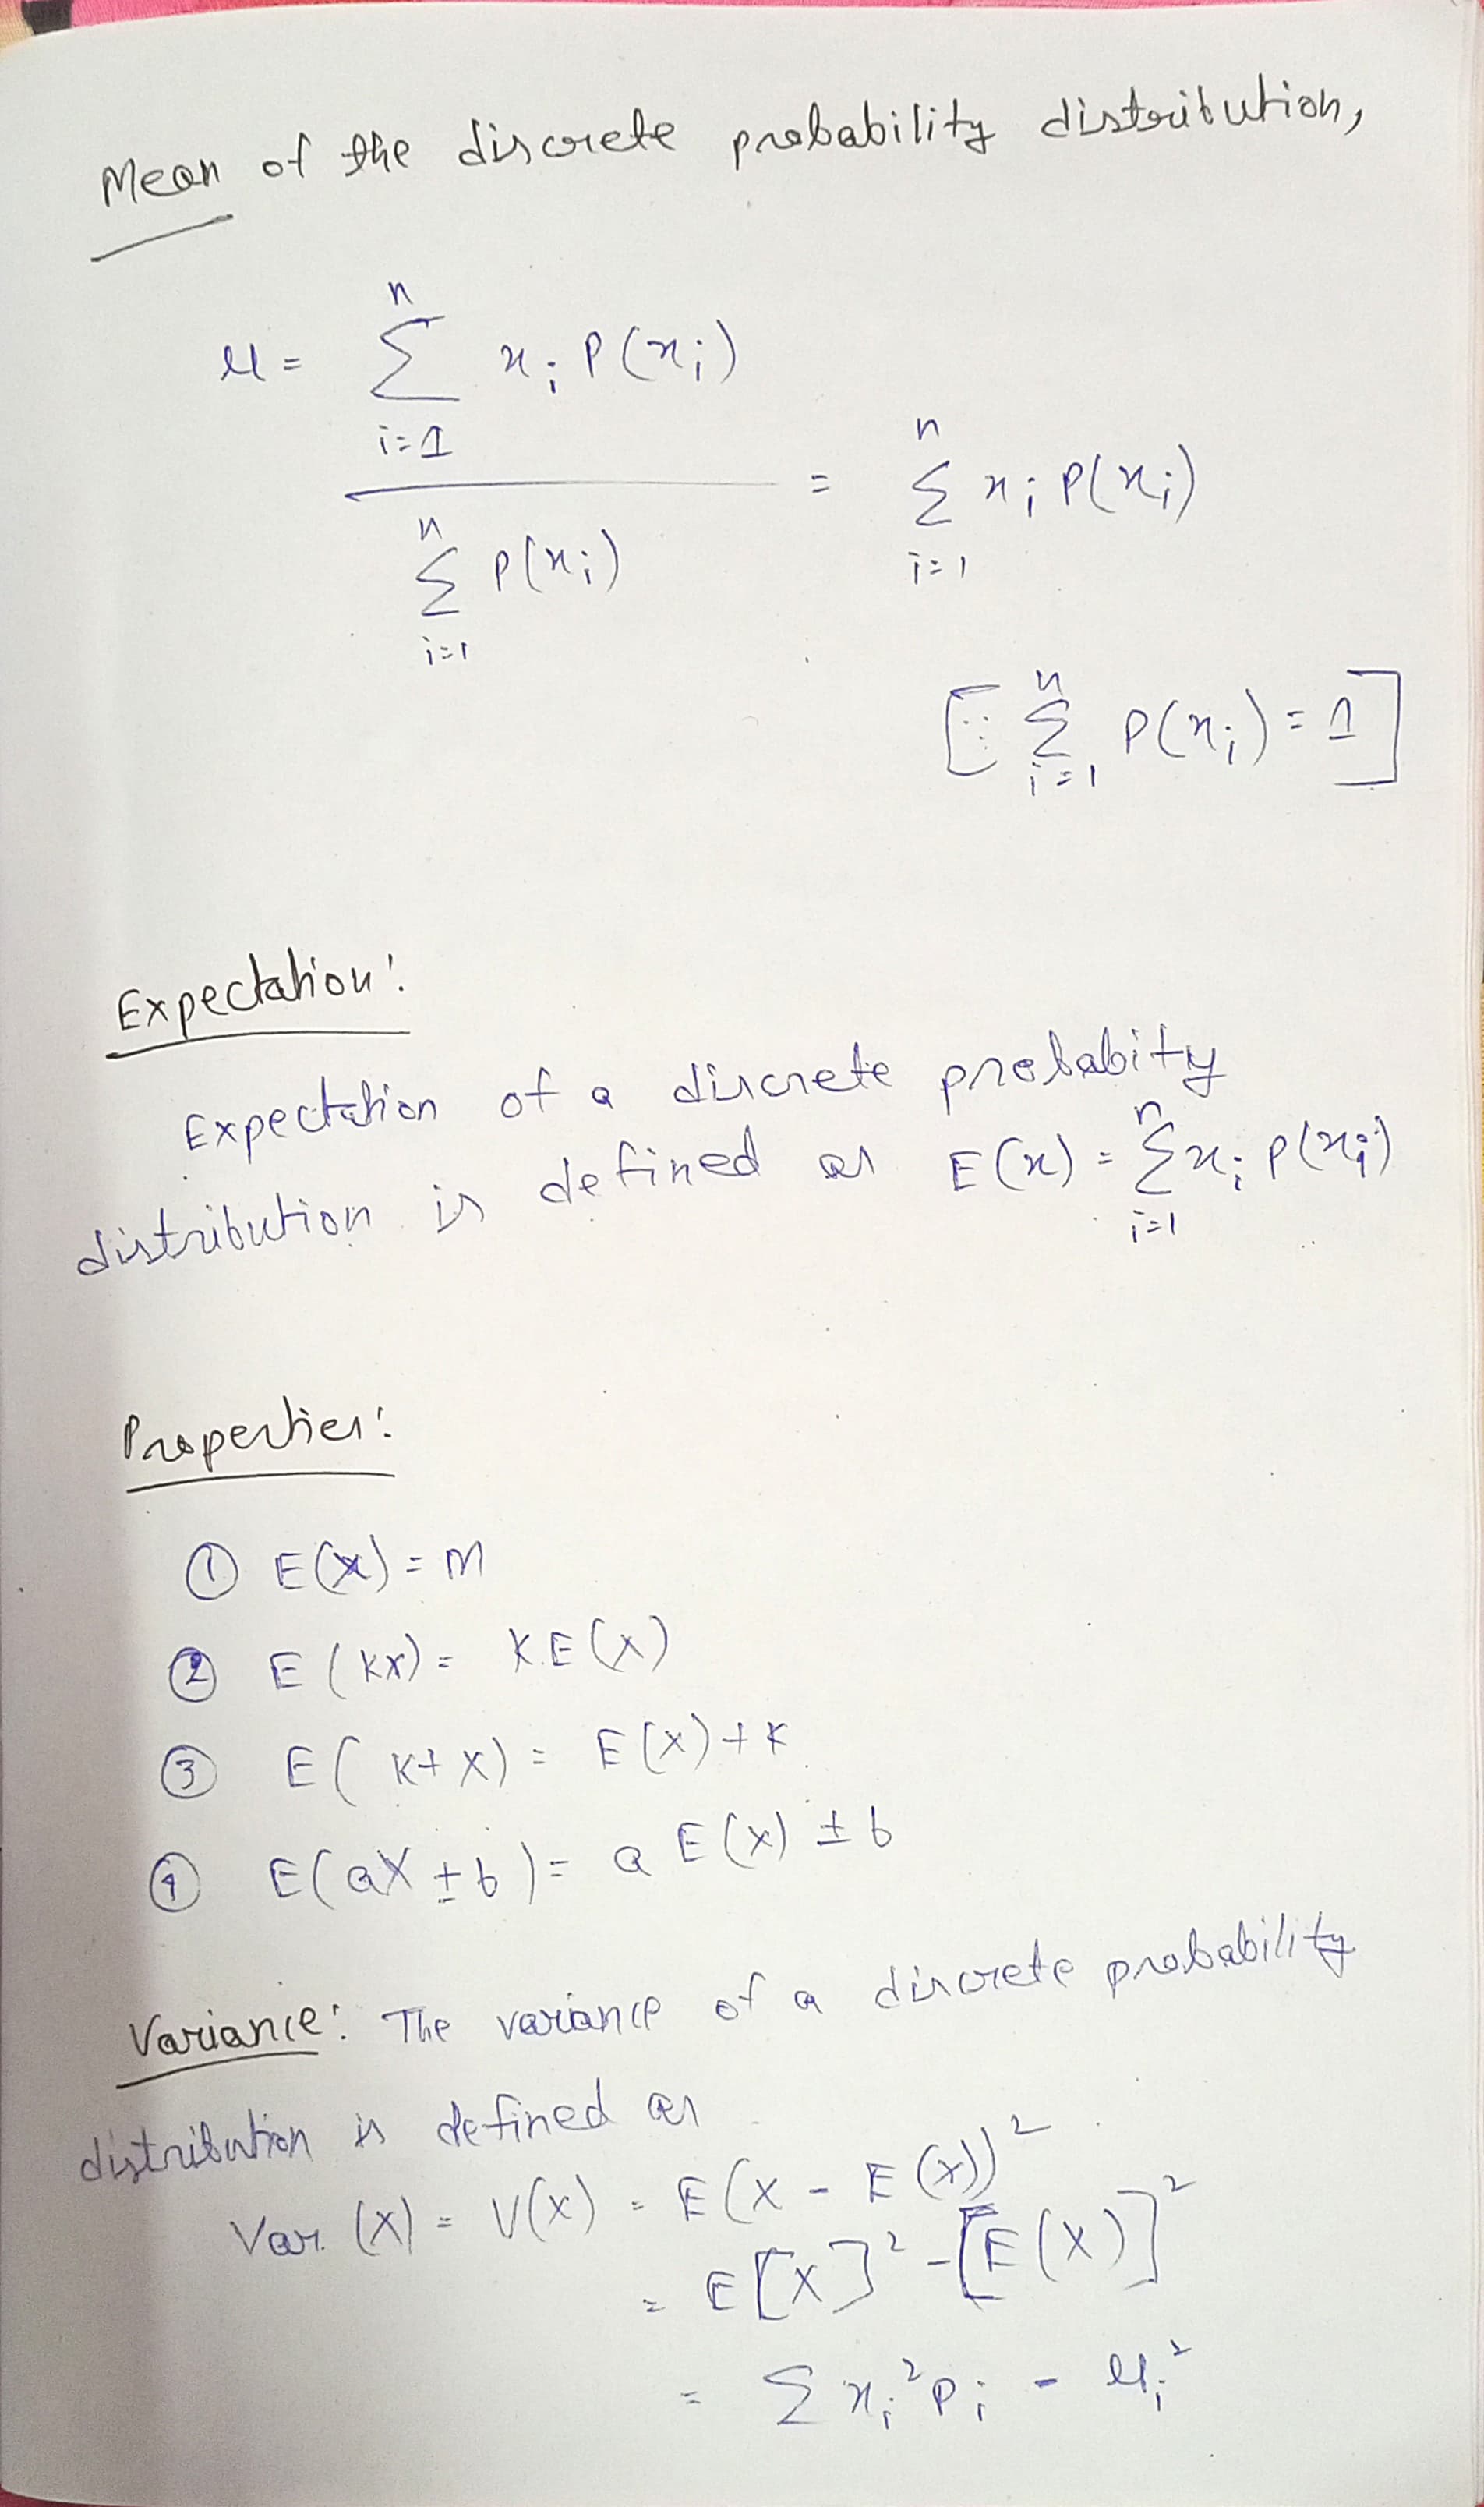 Mean of the discrete probability distribution,
μ = n Σ i=1 xi P(xi) / n Σ i=1 P(xi) = n Σ i=1 xi P(xi)
[∵ n Σ i=1 P(xi) = 1]
Expectation:
Expectation of a discrete probabity
distribution is defined as E(x) = n Σ i=1 xi P(xi)
Properties:
① E(X) = m
② E(kX) = K.E(X)
③ E(K+X) = E(X)+K
④ E(aX ± b) = a E(X) ± b
Variance: The variance of a discrete probability
distribution is defined as
Var (X) = V(X) = E(X - E(X))²
= E[X]² - [E(X)]²
= Σ xi² Pi - μi²